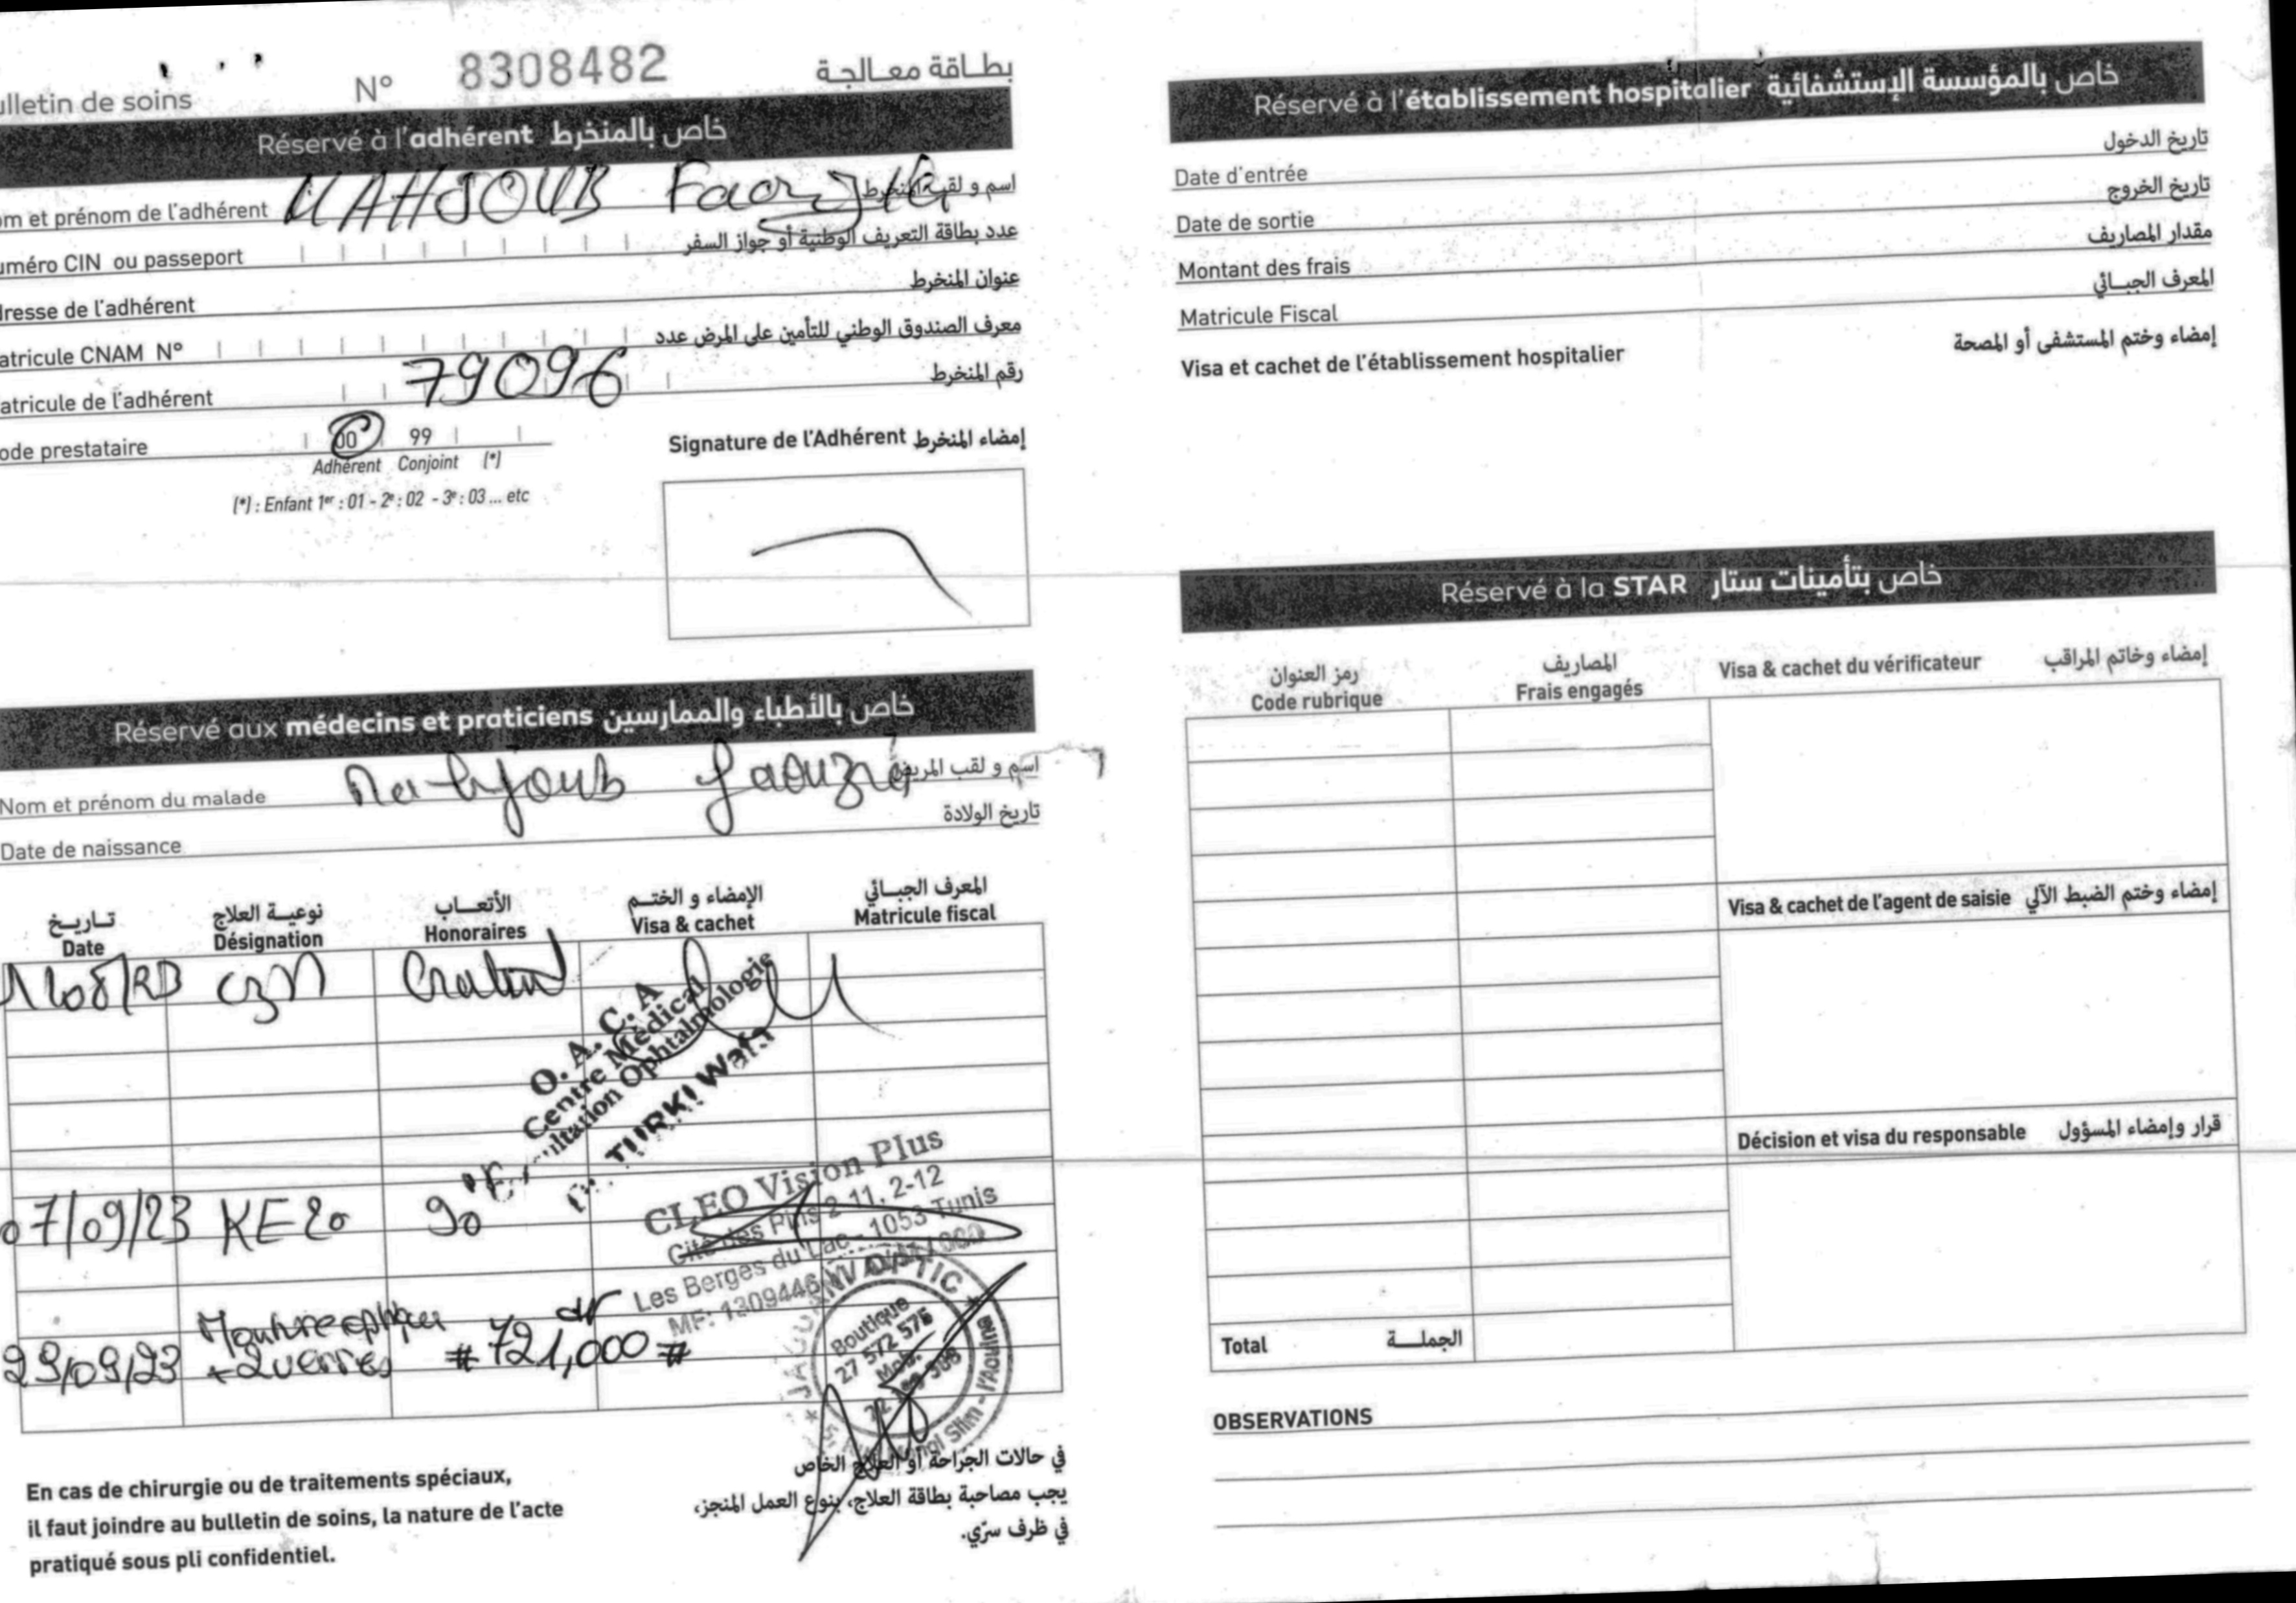 lletin de soins N° 8308482 بطاقة معالجة
Réservé à l'adhérent خاص بالمنخرط
om et prénom de l'adhérent MAHJOUB اسم و لقب المنخرط
uméro CIN ou passeport عدد بطاقة التعريف الوطنية أو جواز السفر
dresse de l'adhérent عنوان المنخرط
atricule CNAM N° معرف الصندوق الوطني للتأمين على المرض عدد
atricule de l'adhérent 79096 رقم المنخرط
ode prestataire 00 99
Adhérent Conjoint (*)
(*) : Enfant 1er : 01 - 2e : 02 - 3e : 03 ... etc
Signature de l'Adhérent إمضاء المنخرط
Réservé aux médecins et praticiens خاص بالأطباء والممارسين
Nom et prénom du malade Mahjoub faouzia اسم و لقب المريض
Date de naissance تاريخ الولادة
تاريخ نوعية العلاج الأتعاب الإمضاء و الختم المعرف الجبائي
Date Désignation Honoraires Visa & cachet Matricule fiscal
O. A. C. A
Centre Médical
Ophtalmologie
TURKI Wafa
07/09/23 KE20 90
CLEO Vision Plus
Cité des Pins 2-11, 2-12
Les Berges du Lac - 1053 Tunis
MF: 1309446
29/09/23 Monture optique + 2 verres # 721,000 # dt
OPTIC
Boutique
27 572 575
Mob.
Slim - l'Aouina
En cas de chirurgie ou de traitements spéciaux,
il faut joindre au bulletin de soins, la nature de l'acte
pratiqué sous pli confidentiel.
في حالات الجراحة أو العلاج الخاص
يجب مصاحبة بطاقة العلاج، بنوع العمل المنجز،
في ظرف سرّي.
Réservé à l'établissement hospitalier خاص بالمؤسسة الإستشفائية
Date d'entrée تاريخ الدخول
Date de sortie تاريخ الخروج
Montant des frais مقدار المصاريف
Matricule Fiscal المعرف الجبائي
Visa et cachet de l'établissement hospitalier إمضاء وختم المستشفى أو المصحة
Réservé à la STAR خاص بتأمينات ستار
رمز العنوان المصاريف
Code rubrique Frais engagés Visa & cachet du vérificateur إمضاء وخاتم المراقب
Visa & cachet de l'agent de saisie إمضاء وختم الضبط الآلي
Décision et visa du responsable قرار وإمضاء المسؤول
Total الجملة
OBSERVATIONS